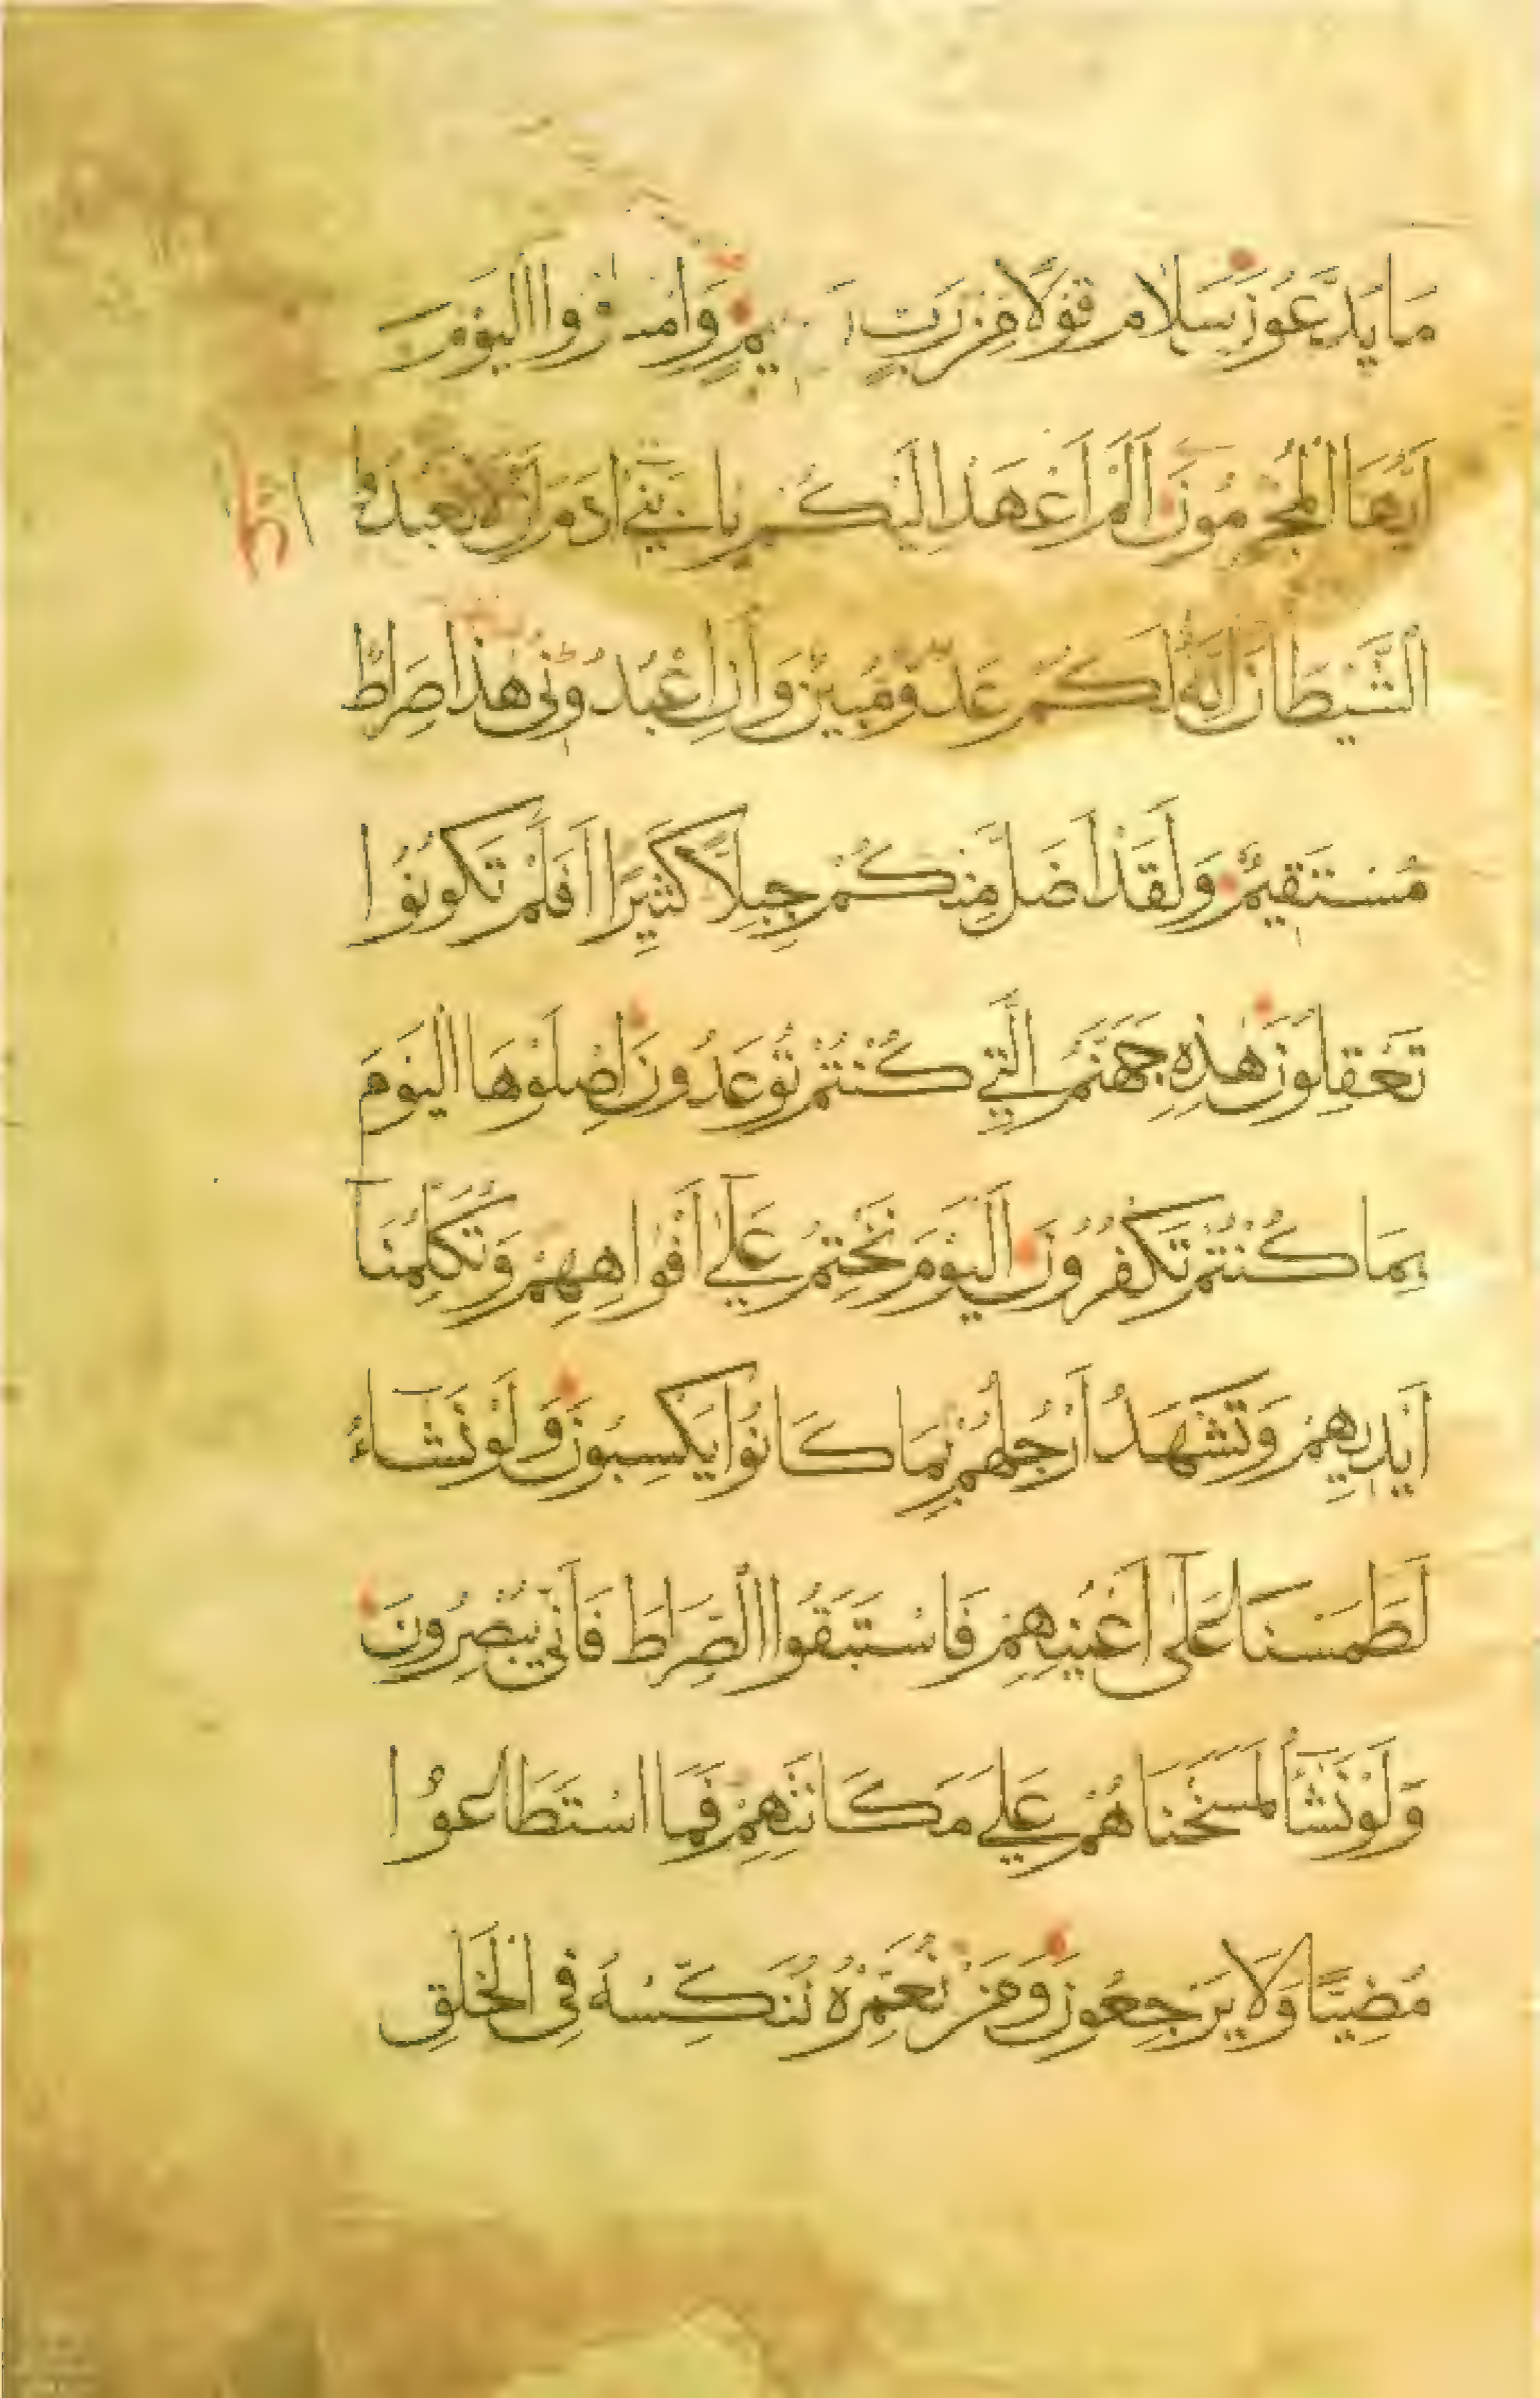 مَا يَدَّعُونَ سَلَامٌ قَوْلًا مِنْ رَبٍّ وَامْتَازُوا الْيَوْمَ
أَيُّهَا الْمُجْرِمُونَ أَلَمْ أَعْهَدْ إِلَيْكُمْ يَا بَنِي آدَمَ أَنْ لَا تَعْبُدُوا
الشَّيْطَانَ إِنَّهُ لَكُمْ عَدُوٌّ مُبِينٌ وَأَنِ اعْبُدُونِي هَذَا صِرَاطٌ
مُسْتَقِيمٌ وَلَقَدْ أَضَلَّ مِنْكُمْ جِبِلًّا كَثِيرًا أَفَلَمْ تَكُونُوا
تَعْقِلُونَ هَذِهِ جَهَنَّمُ الَّتِي كُنْتُمْ تُوعَدُونَ اصْلَوْهَا الْيَوْمَ
بِمَا كُنْتُمْ تَكْفُرُونَ الْيَوْمَ نَخْتِمُ عَلَى أَفْوَاهِهِمْ وَتُكَلِّمُنَا
أَيْدِيهِمْ وَتَشْهَدُ أَرْجُلُهُمْ بِمَا كَانُوا يَكْسِبُونَ وَلَوْ نَشَاءُ
لَطَمَسْنَا عَلَى أَعْيُنِهِمْ فَاسْتَبَقُوا الصِّرَاطَ فَأَنَّى يُبْصِرُونَ
وَلَوْ نَشَأُ لَمَسَخْنَاهُمْ عَلَى مَكَانَتِهِمْ فَمَا اسْتَطَاعُوا
مُضِيًّا وَلَا يَرْجِعُونَ وَمَنْ نُعَمِّرْهُ نُنَكِّسْهُ فِي الْخَلْقِ